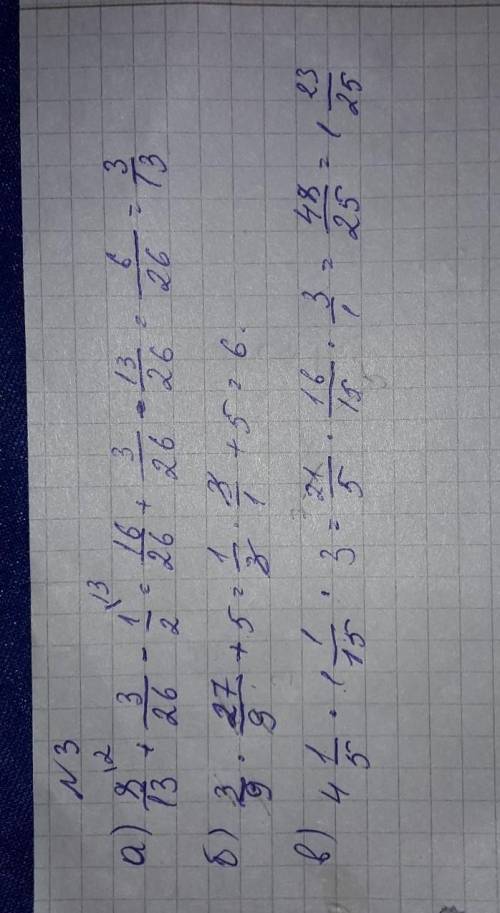 №3
а) 8/13 \2 + 3/26 - 1/2 \13 = 16/26 + 3/26 - 13/26 = 6/26 = 3/13
б) 3/9 · 27/9 + 5 = 1/3 · 3/1 + 5 = 6.
в) 4 1/5 · 1 1/15 · 3 = 21/5 · 16/15 · 3/1 = 48/25 = 1 23/25